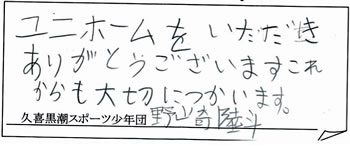 ユニホームをいただき
ありがとうございますこれ
からも大切につかいます。
久喜黒潮スポーツ少年団 野山奇陸斗